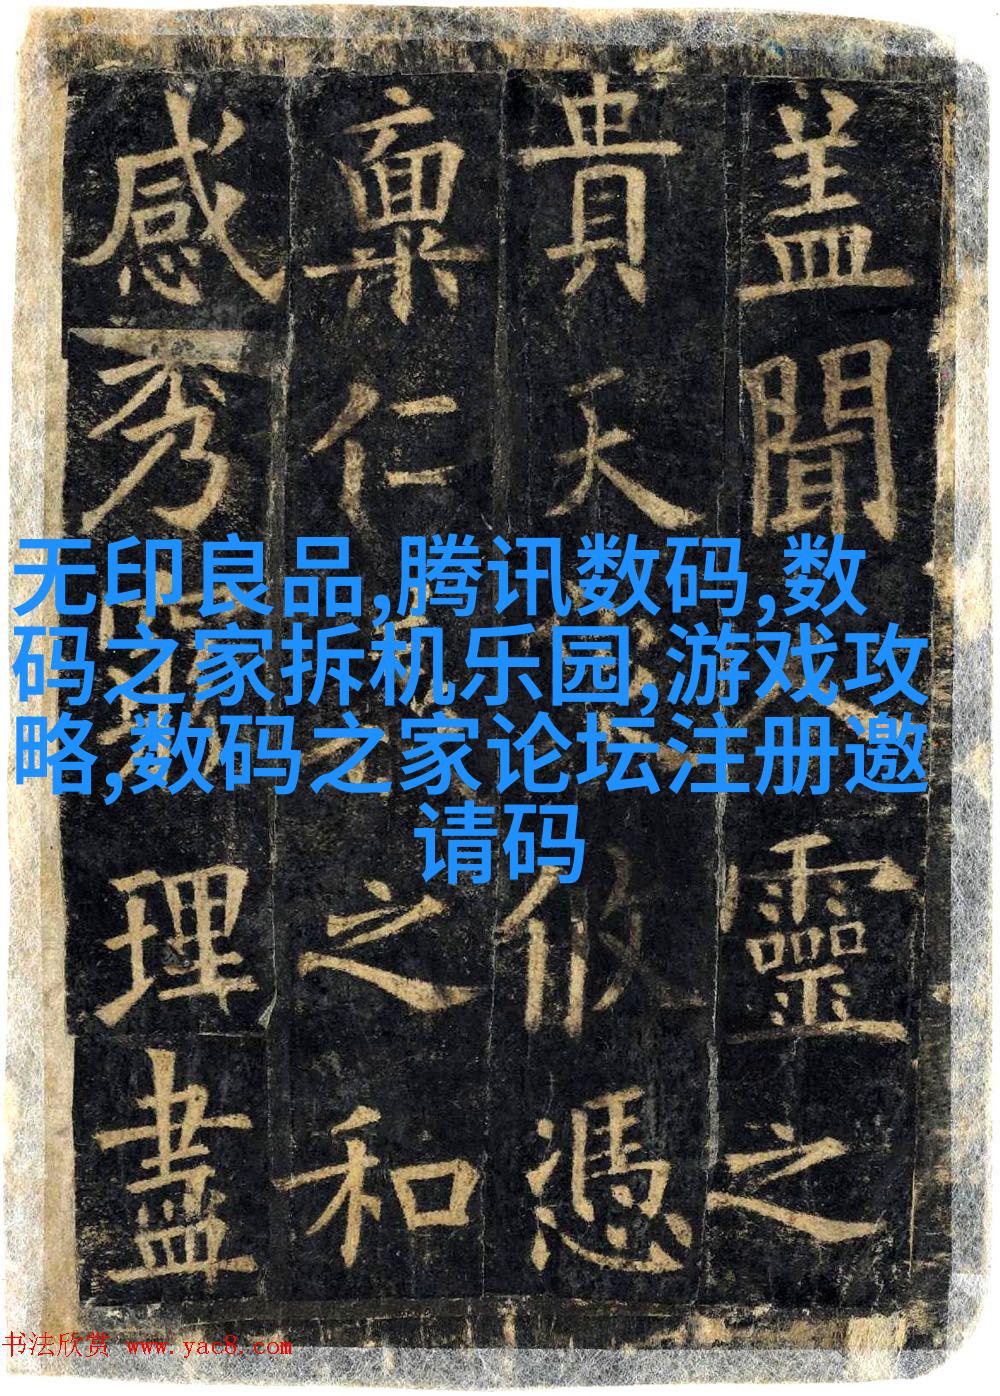 盖聞靈之
貴天攸憑
稟仁之和
感秀理盡
无印良品,腾讯数码,数
码之家拆机乐园,游戏攻
略,数码之家论坛注册邀
请码
书法欣赏 www.yac8.com